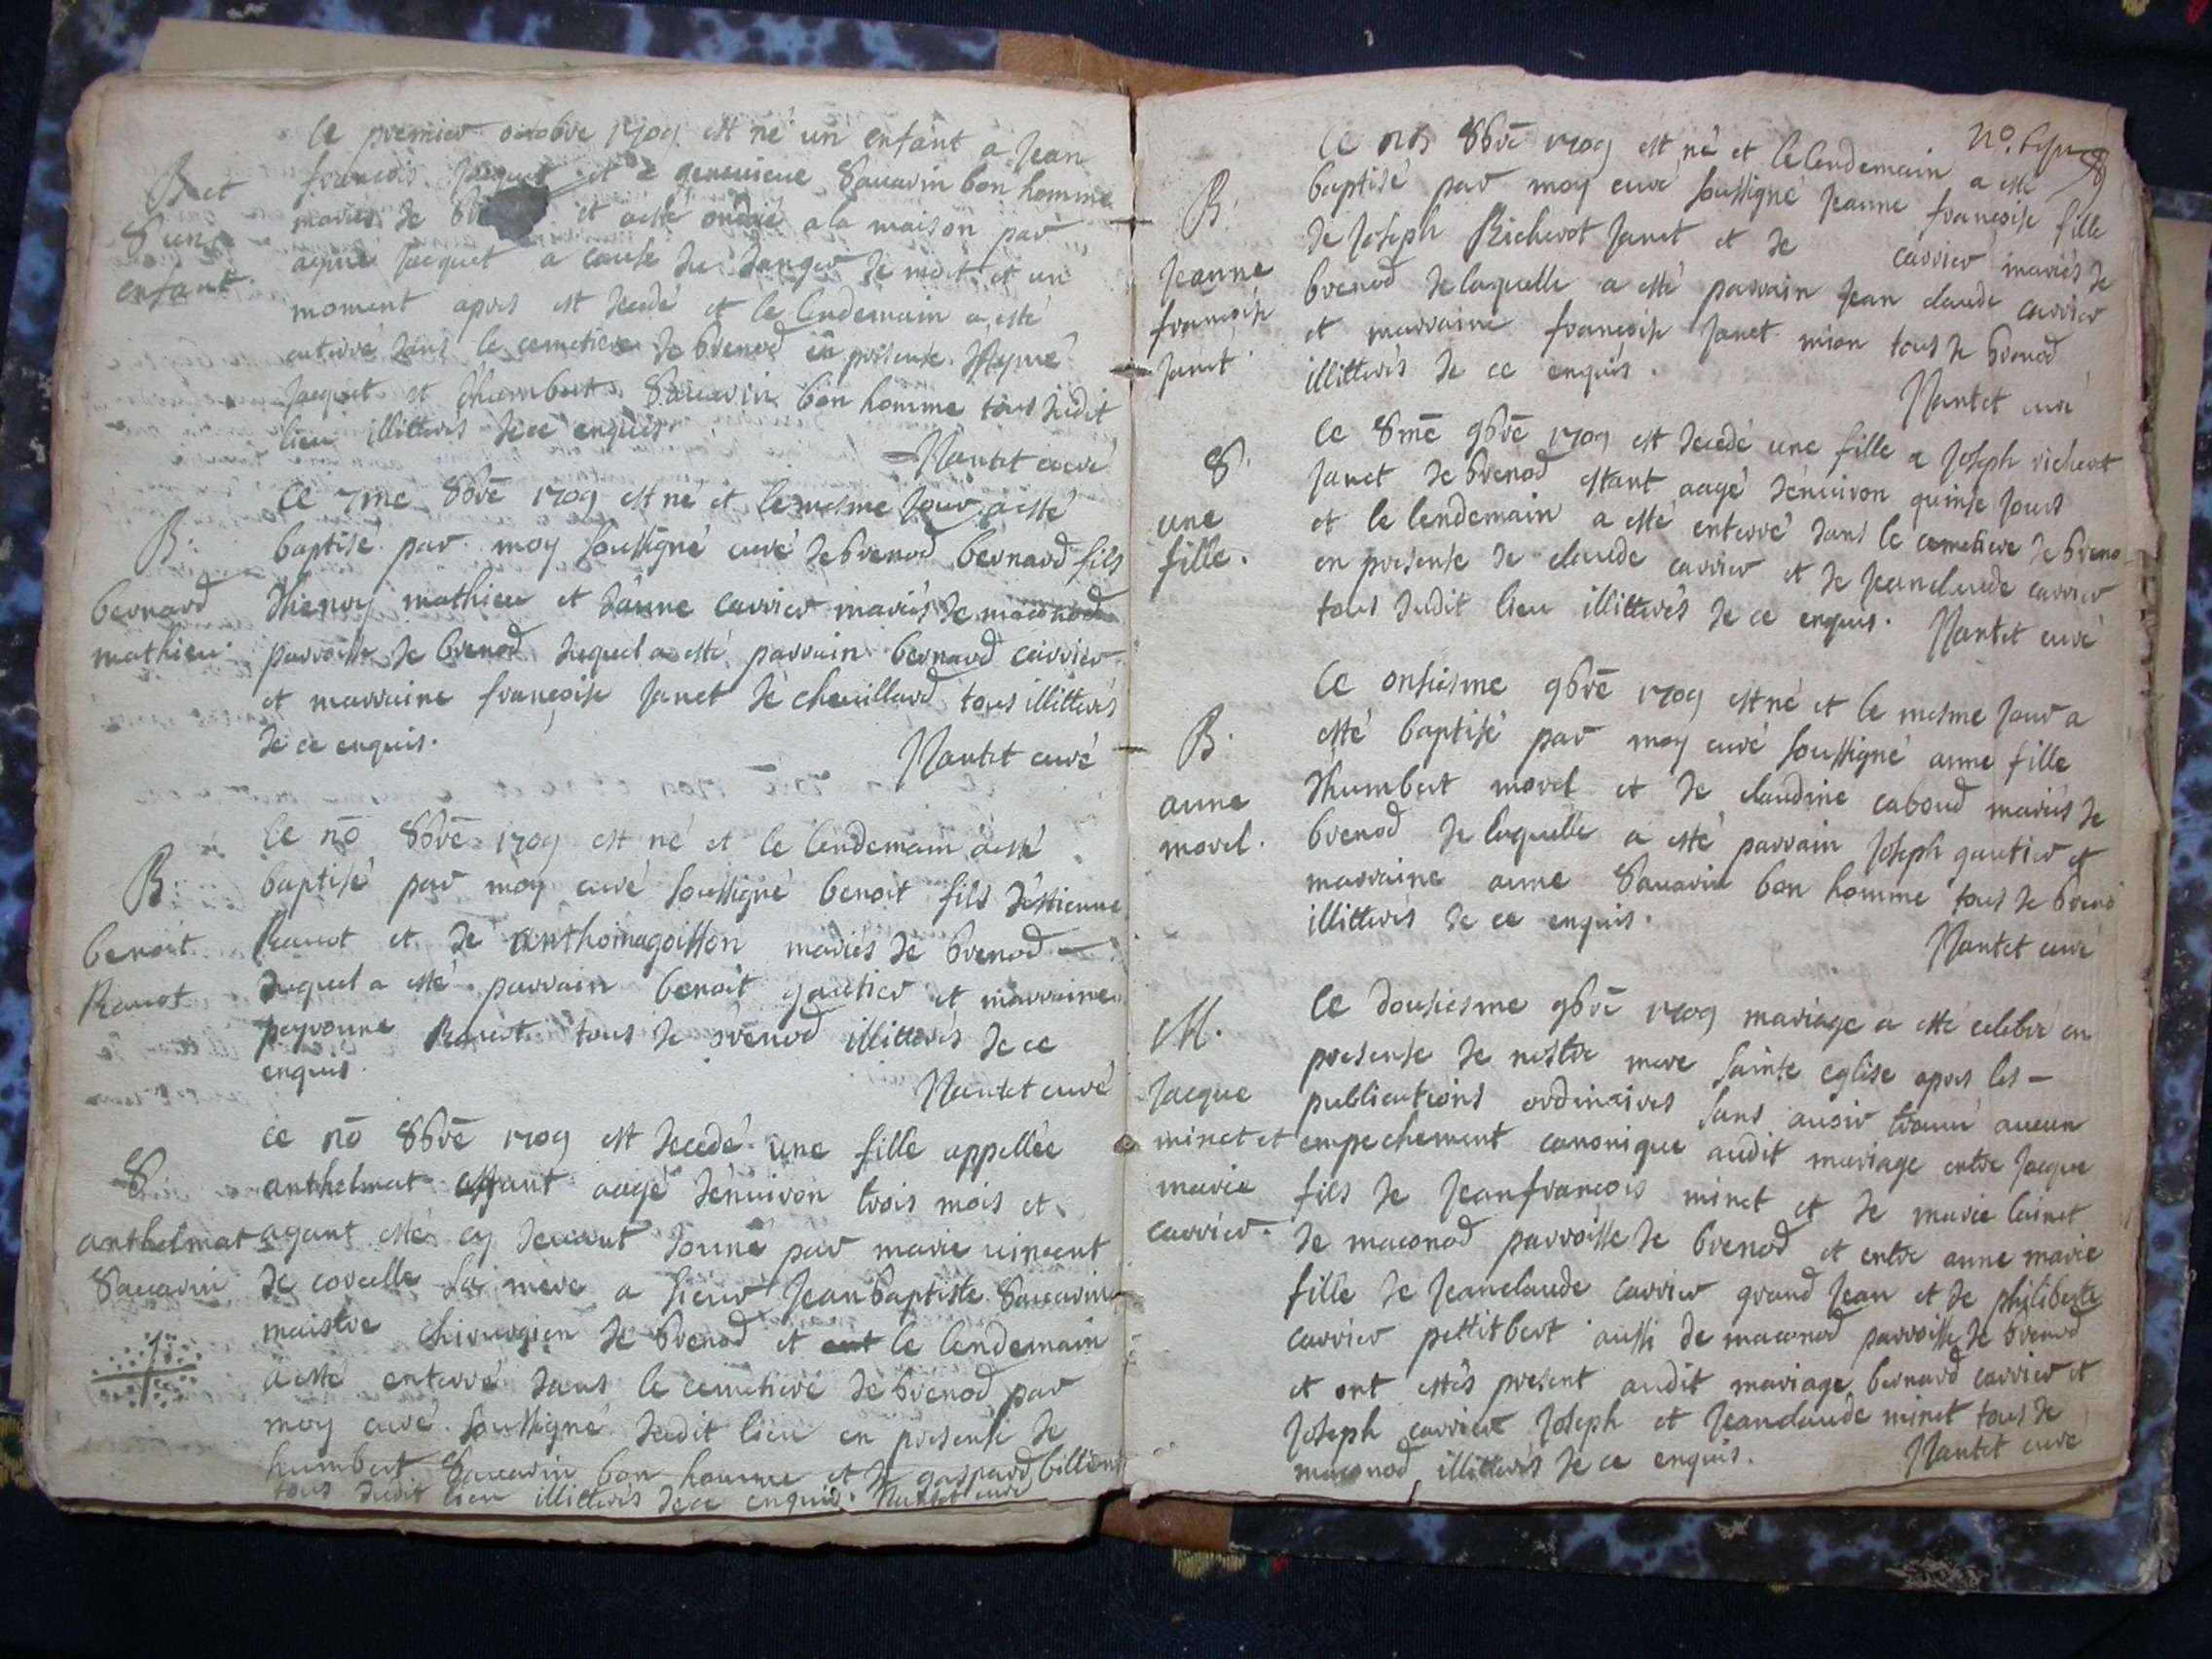 Le premier octobre 1709 est né un enfant a Jean
B et
françois Jacquet et a geneuieue Sauarin bon homme
S un
mariés de et a esté ondoié a la maison par
enfant
aymé Jacquet a cause du danger de mort et un
moment apres est decedé et le lendemain a esté
enterré dans le cemetiere de brenod en presense d'Aymé
Jacquet et d'humbert Sauarin bon homme tous dudit
lieu illitterés de ce enquis
Nantet curé
Le 7me 8bre 1709 est né et le mesme Jour a esté
B.
baptisé par moy soussigné curé de brenod bernard fils
bernard
d'hieroy mathieu et d'anne carrier mariés de maconod
mathieu
parroisse de brenod duquel a esté parrain bernard carrier
et marraine françoise Janet de cheuillard tous illitterés
de ce enquis.
Nantet curé
Le 20 8bre 1709 est né et le lendemain a esté
B.
baptisé par moy curé soussigné benoit fils d'estienne
benoit
Rauot et de anthoina goisson mariés de brenod —
Rauot
duquel a esté parrain benoit gautier et marraine
peyronne Rauot tous de brenod illitterés de ce
enquis.
Nantet curé
Le 20 8bre 1709 est decedé une fille appellée
S
anthelmat estant aagé d'enuiron trois mois et
anthelmat
ayant esté cy deuant donné par marie uincent
Sauarin
de corcelle sa mere a sieur Jean baptiste Sauarin
maistre chirurgien de brenod et le lendemain
a esté enterré dans le cemetiere de brenod par
moy curé soussigné dudit lieu en presense de
humbert Sauarin bon homme et de gaspard billion
tous dudit lieu illitterés de ce enquis. Nantet curé
Le 25 8bre 1709 est né et le lendemain a esté
B.
baptisé par moy curé soussigné Jeanne françoise fille
Jeanne
de Joseph Richerot Janet et de carrier mariés de
françoise
brenod de laquelle a esté parrain Jean claude carrier
Janet.
et marraine françoise Janet mion tous de brenod
illitterés de ce enquis.
Nantet curé
Le 8me 9bre 1709 est decedé une fille a Joseph richerot
S.
Janet de brenod estant aagé d'enuiron quinse Jours
une
et le lendemain a esté enterré dans le cemetiere de breno
fille.
en presense de claude carrier et de Jeanclaude carrier
tous dudit lieu illitterés de ce enquis. Nantet curé
Le onsiesme 9bre 1709 est né et le mesme Jour a
B.
esté baptisé par moy curé soussigné anne fille
anne
d'humbert morel et de claudine caboud mariés de
morel.
brenod de laquelle a esté parrain Joseph gautier et
marraine anne Sauarin bon homme tous de breno
illitterés de ce enquis.
Nantet curé
Le dousiesme 9bre 1709 mariage a esté celebré en
M.
presense de nostre mere sainte eglise apres les —
Jacque
publications ordinaires sans auoir trouué aucun
minet et
empechement canonique audit mariage entre Jacque
marie
fils de Jeanfrançois minet et de marie lainet
carrier.
de maconod parroisse de brenod et entre anne marie
fille de Jeanclaude carrier grand Jean et de philiberte
carrier pettitbert aussi de maconod parroisse de brenod
et ont estés present audit mariage bernard carrier et
Joseph carrier Joseph et Jeanclaude minet tous de
maconod illitterés de ce enquis.
Nantet curé